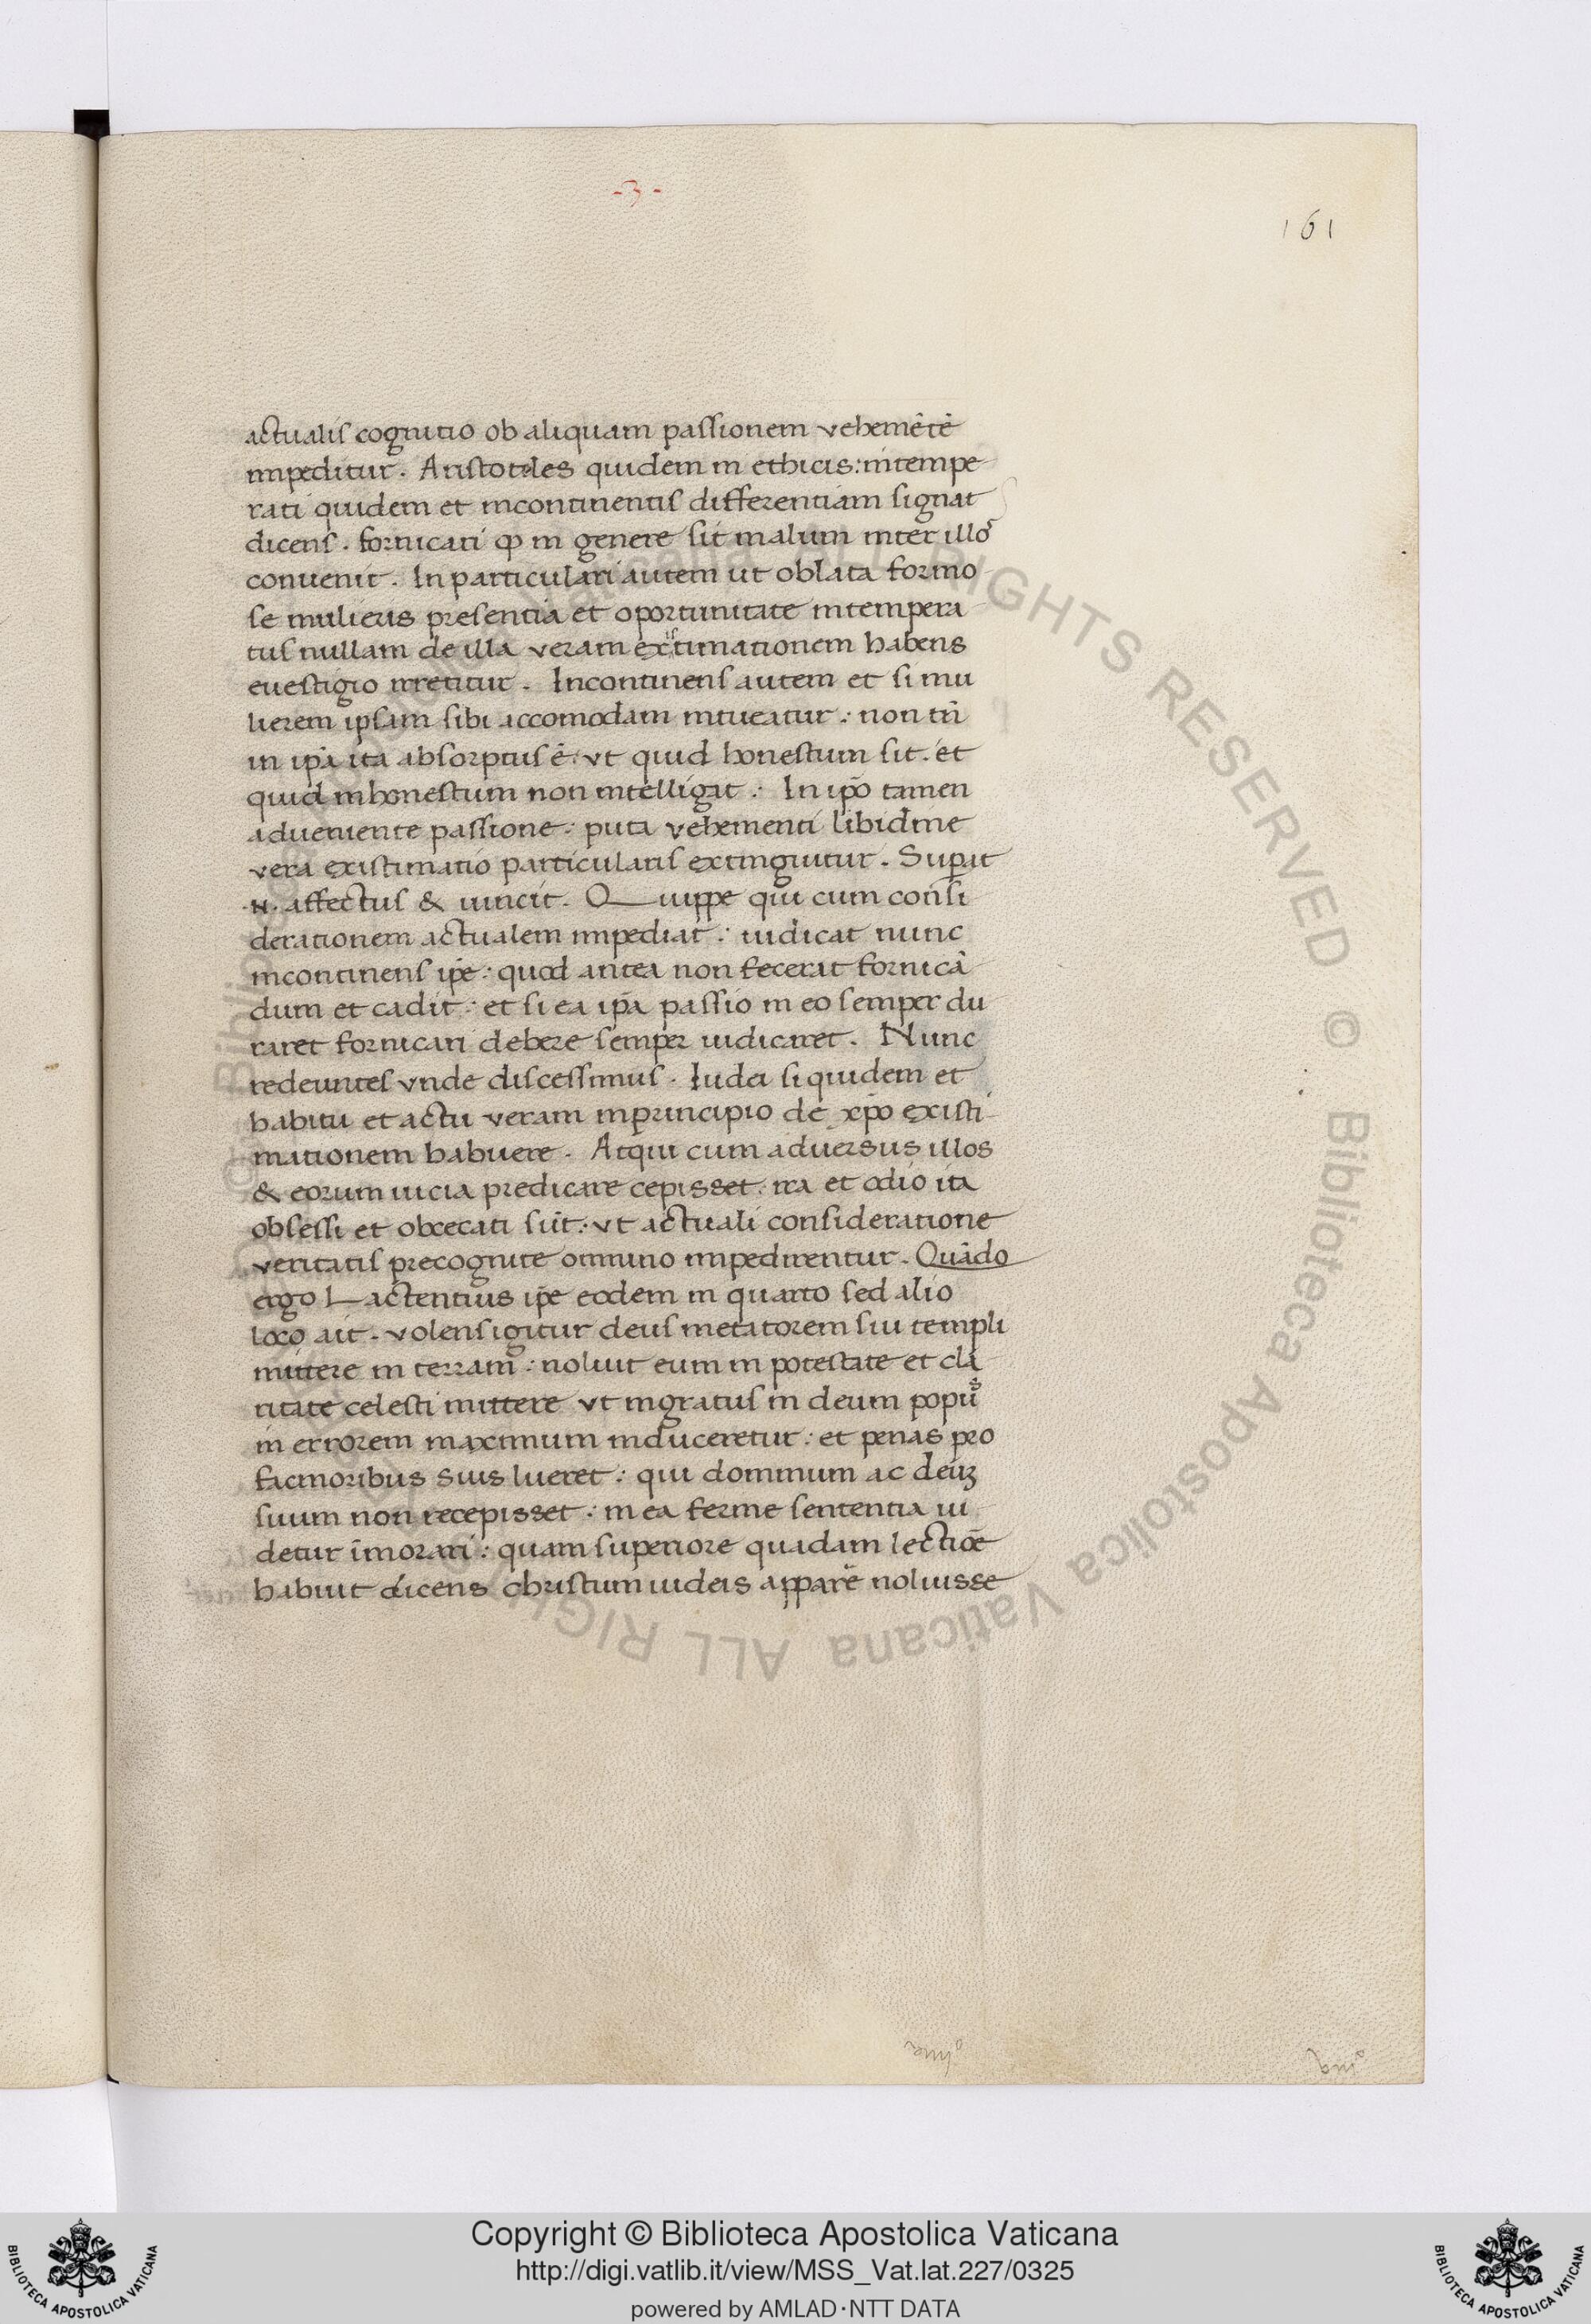 -3-
161
actualis cognitio ob aliquam passionem vehemētē
impeditur. Aristoteles quidem in ethicis: intempe
rati quidem et incontinentis differentiam signat
dicens. fornicari ꝙ in genere sit malum inter illos
conuenit. In particulari autem ut oblata formo
se mulieris presentia et oportunitate intempera
tus nullam de illa veram existimationem habens
euestigio irretitur. Incontinens autem et si mu
lierem ipsam sibi accomodam intueatur: non tn̄
in ip̄a ita absorptus ē: vt quid honestum sit. et
quid inhonestum non intelligat: In ip̄o tamen
adueniente passione: puta vehementi libidine
vera existimatio particularis extinguitur. Sup̄at
.N. affectus & uincit. Quippe qui cum consi
derationem actualem impediat: iudicat nunc
incontinens ip̄e: quod antea non fecerat fornicā
dum et cadit: et si ea ip̄a passio in eo semper du
raret fornicari debere semper iudicaret. Nunc
redeuntes vnde discessimus. Iudei siquidem et
habitu et actu veram inprincipio de xp̄o existi
mationem habuere. Atqui cum aduersus illos
& eorum uicia predicare cepisset: ira et odio ita
obsessi et obcecati sūt: vt actuali consideratione
veritatis precognite omnino impedirentur. Quādo
ergo Lactentius ip̄e eodem in quarto sed alio
loco ait. volens igitur deus metatorem sui templi
mittere in terram: noluit eum in potestate et cla
ritate celesti mittere vt ingratus in deum popūs
in errorem maximum induceretur: et penas pro
facinoribus suis lueret: qui dominum ac deūʒ
suum non recepisset: in ea ferme sententia ui
detur īmorari: quam superiore quadam lectiōe
habuit dicens christum iudeis apparē noluisse
Copyright © Biblioteca Apostolica Vaticana
http://digi.vatlib.it/view/MSS_Vat.lat.227/0325
powered by AMLAD·NTT DATA